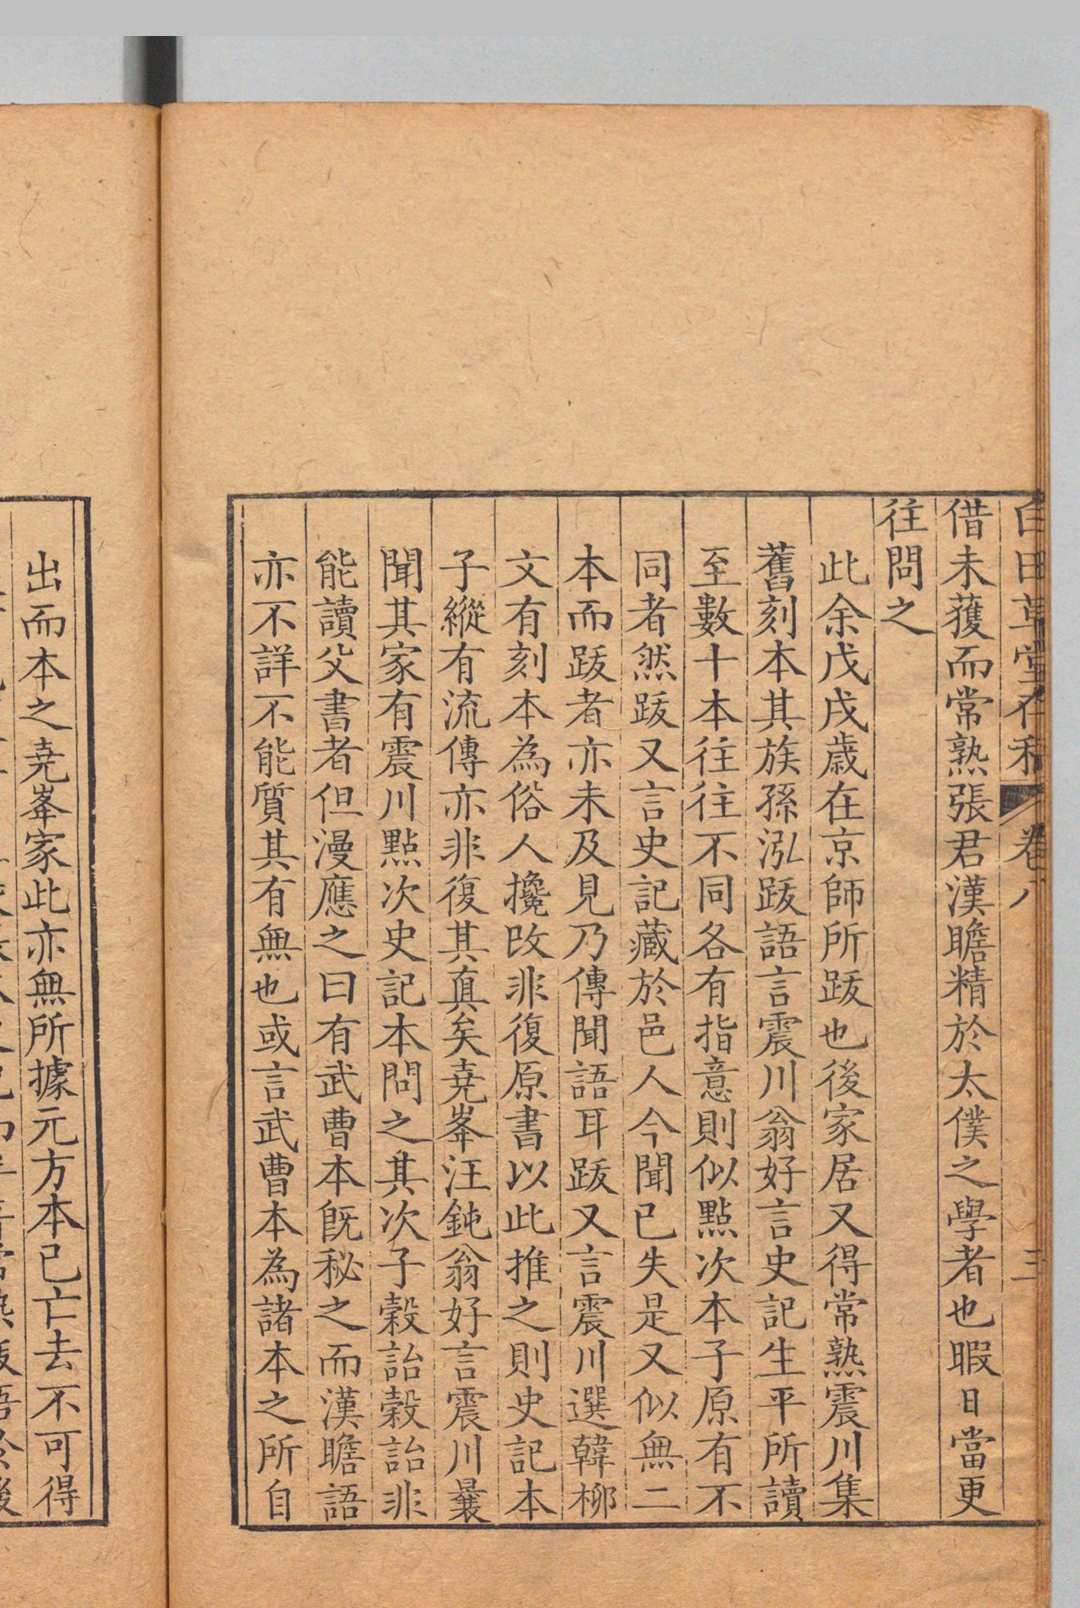 白田草堂存稿 卷八 三
借未蒦而常熟張君漢瞻精於太僕之學者也暇日當更
往問之
此余戊戌歲在京師所跋也後家居又得常熟震川集
舊刻本其族孫泓跋語言震川翁好言史記生平所讀
至數十本往往不同各有指意則似點次本子原有不
同者然跋又言史記藏於邑人今聞已失是又似無二
本而跋者亦未及見乃傳聞語耳跋又言震川選韓柳
文有刻本為俗人攙改非復原書以此推之則史記本
子縱有流傳亦非復其真矣堯峯汪鈍翁好言震川曩
聞其家有震川點次史記本問之其次子穀詒穀詒非
能讀父書者但漫應之曰有武曹本既秘之而漢瞻語
亦不詳不能質其有無也或言武曹本為諸本之所自
出而本之堯峯家此亦無所據元方本已亡去不可得